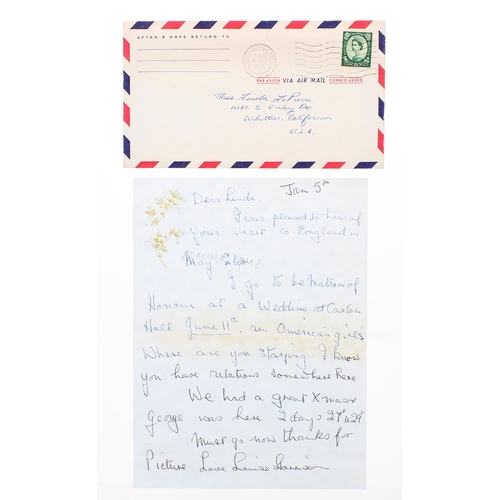 AFTER 5 DAYS RETURN TO
PAR AVION VIA AIR MAIL CORREO AEREO
Miss Linda
Whittier, California
U.S.A.
Jan 5th
Dear Linda.
I was pleased to hear of
Your visit to England in
May.
I go to be Matron of
Honour at a Wedding at Caxton
Hall June 11th. an American girls
Where are you staying. I know
you have relations somewhere here
We had a great Xmas
George was here 2 days 27th to 29th
Must go now thanks for
Picture Love Louise Harrison